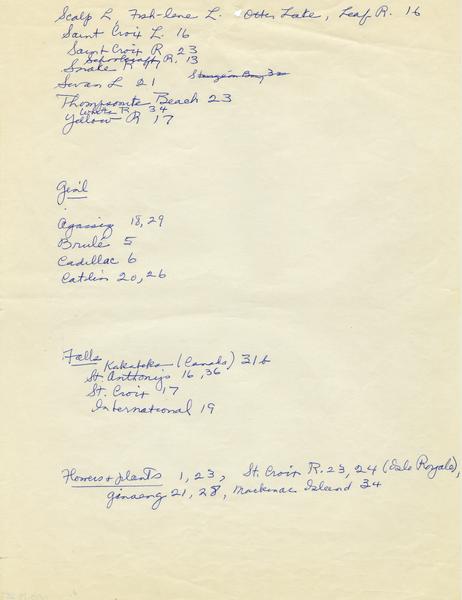 Scalp L, Fish-lane L. Otter Lake, Leaf R. 16
Saint Croix L. 16
Saint Croix R. 23
Schoolcraft R. 13
Snake R 17 Sturgeon Bay, 32
Swan L 21
Thompsonite Beach 23
White R 34
Yellow R 17
Gen'l
Agassiz 18, 29
Brulé 5
Cadillac 6
Catlin 20, 26
Falls Kakabeka (Canada) 31b
St. Anthony's 16, 36
St. Croix 17
International 19
Flowers & plants 1, 23, St. Croix R. 23, 24 (Isle Royale),
ginseng 21, 28, Mackinac Island 34